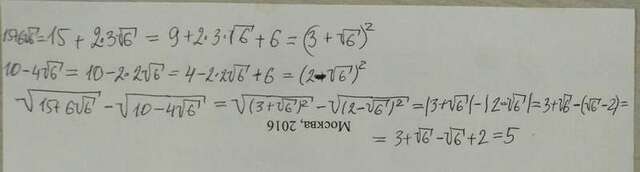 15+6√6 = 15 + 2·3√6 = 9 + 2·3·√6 + 6 = (3 + √6)²
10 - 4√6 = 10 - 2·2√6 = 4 - 2·2√6 + 6 = (2 - √6)²
√(15+6√6) - √(10-4√6) = √((3+√6)²) - √((2-√6)²) = |3+√6| - |2-√6| = 3+√6 - (√6-2) =
Москва, 2016
= 3+√6 - √6 + 2 = 5